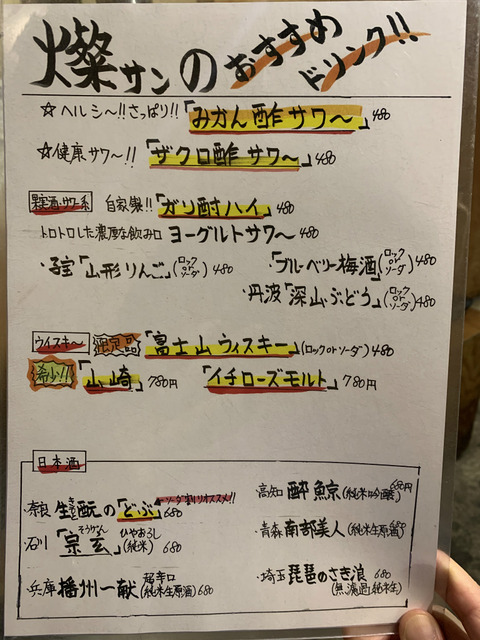 燦サンのおすすめドリンク!!
☆ヘルシ〜!!さっぱり!!「みかん酢サワ〜」480
☆健康サワ〜!!「ザクロ酢サワ〜」480
果実酒・サワー系 自家製!!「ガリ酎ハイ」480
トロトロした濃厚な飲み口 ヨーグルトサワ〜 480
・子宝「山形りんご」(ロックorソーダ)480
・「ブルーベリー梅酒」(ロックorソーダ)480
・丹波「深山ぶどう」(ロックorソーダ)480
ウイスキ〜 限定品「富士山ウィスキー」(ロックorソーダ)480
希少!!「山崎」780円 「イチローズモルト」780円
日本酒
・奈良 生酛のどぶ」680 ←ソーダ割りオススメ!!
・石川「宗玄」そうげん ひやおろし(純米)680
・兵庫 播州一献 超辛口(純米生原酒)680
・高知 酔鯨(純米吟醸)680円
・青森 南部美人(純米生原酒)
・埼玉 琵琶のさき浪 680(無濾過純米生)